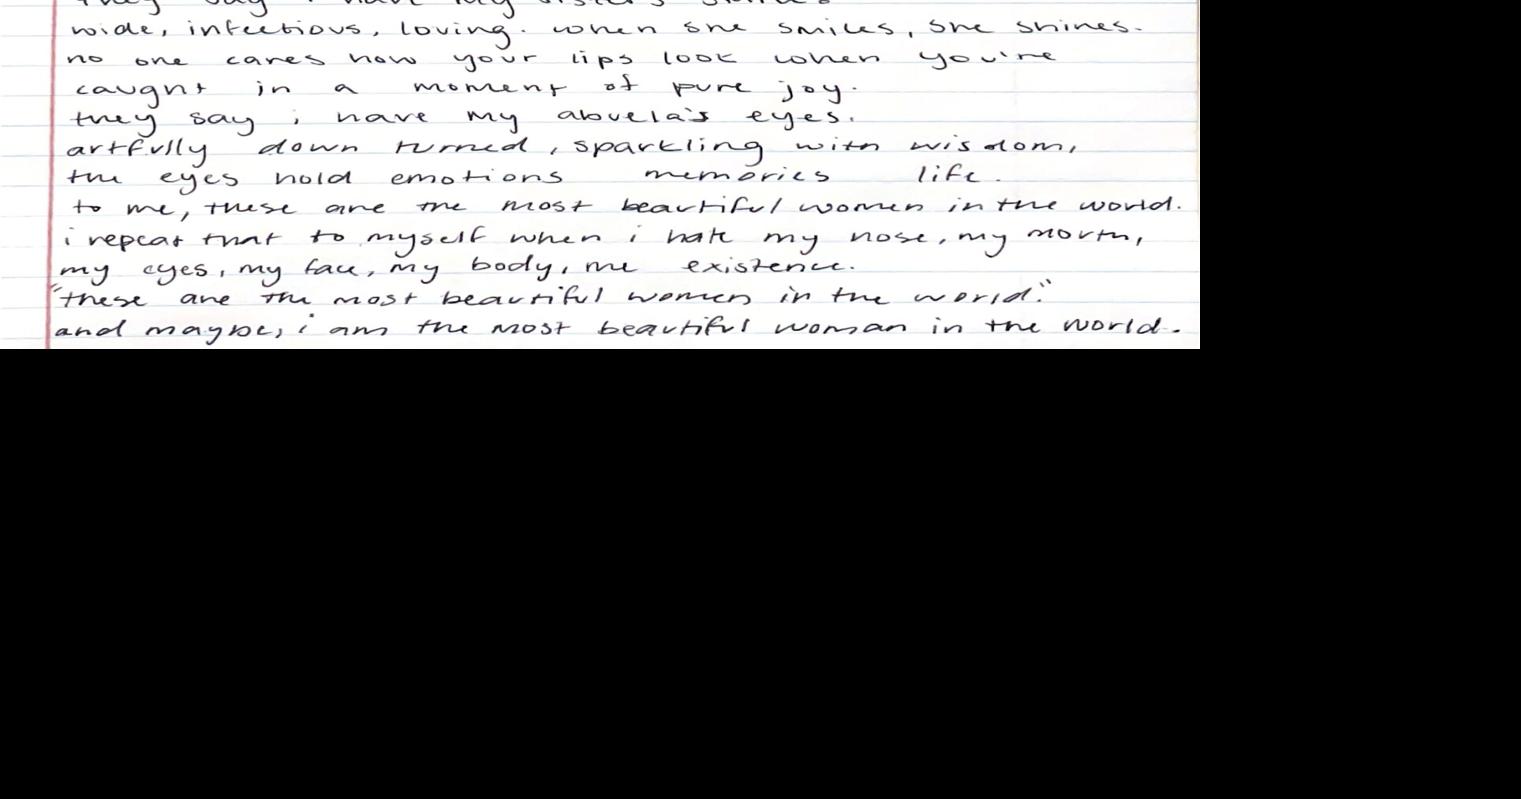 they say i have my sister's smile.
wide, infectious, loving. when she smiles, she shines.
no one cares how your lips look when you're
caught in a moment of pure joy.
they say i have my abuela's eyes.
artfully down turned, sparkling with wisdom,
the eyes hold emotions memories life.
to me, these are the most beautiful women in the world.
i repeat that to myself when i hate my nose, my mouth,
my eyes, my face, my body, me existence.
"these are the most beautiful women in the world."
and maybe, i am the most beautiful woman in the world.